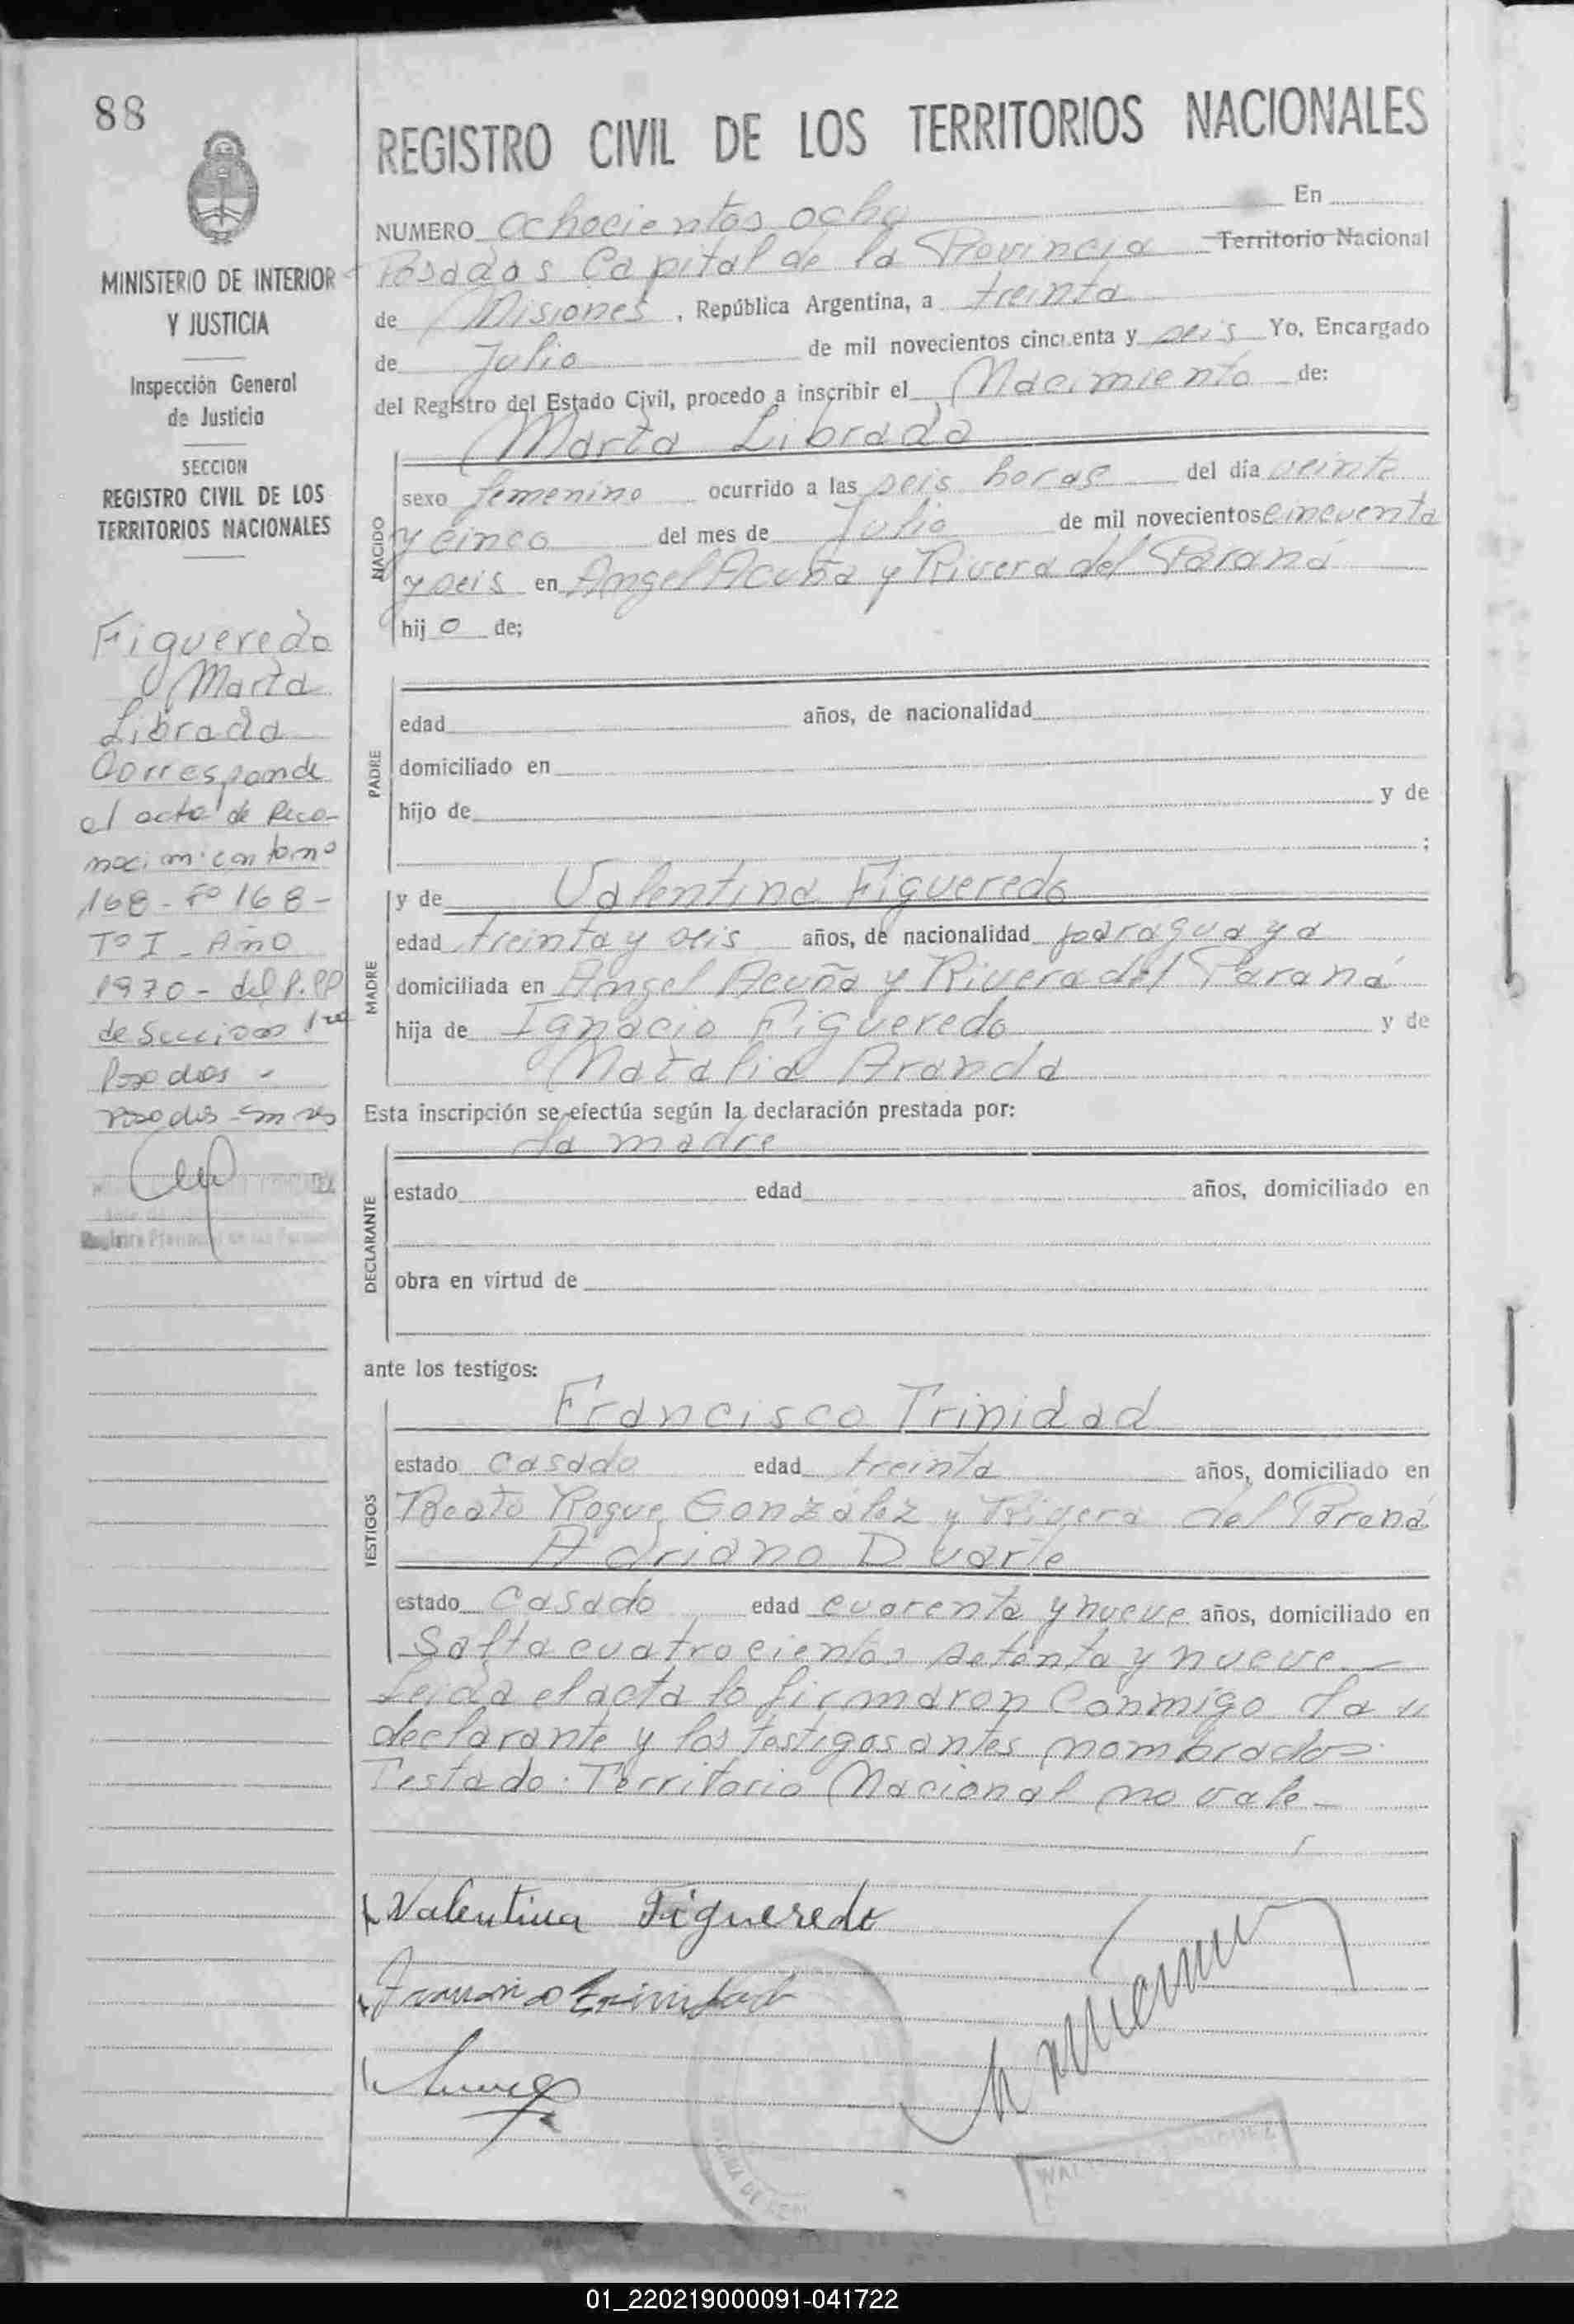 88
MINISTERIO DE INTERIOR
Y JUSTICIA
Inspección General
de Justicia
SECCION
REGISTRO CIVIL DE LOS
TERRITORIOS NACIONALES
Figueredo
Marta
Librada
Corresponde
al acta de Reco-
nocimiento nº
168 - Fº 168 -
Tº I - Año
1970 - del R.PP
de Seccion 1ra
Posadas -
Posadas
REGISTRO CIVIL DE LOS TERRITORIOS NACIONALES
NUMERO ochocientos ocho En
Posadas Capital de la Provincia Territorio Nacional
de Misiones, República Argentina, a treinta
de Julio de mil novecientos cincuenta y seis Yo, Encargado
del Registro del Estado Civil, procedo a inscribir el Nacimiento de:
Marta Librada
NACIDO
sexo femenino ocurrido a las seis horas del día veinte
y cinco del mes de Julio de mil novecientos cincuenta
y seis en Angel Acuña y Rivera del Paraná
hij o de;
PADRE
edad años, de nacionalidad
domiciliado en
hijo de y de
;
MADRE
y de Valentina Figueredo
edad treinta y seis años, de nacionalidad paraguaya
domiciliada en Angel Acuña y Rivera del Paraná
hija de Ignacio Figueredo y de
Natalia Aranda
Esta inscripción se efectúa según la declaración prestada por:
la madre
DECLARANTE
estado edad años, domiciliado en
obra en virtud de
ante los testigos:
TESTIGOS
Francisco Trinidad
estado casado edad treinta años, domiciliado en
Beato Roque González y Rivera del Paraná
Adriano Duarte
estado casado edad cuarenta y nueve años, domiciliado en
Salta cuatrocientos setenta y nueve -
Leida el acta lo firmaron conmigo la
declarante y los testigos antes nombrados
Testado: Territorio Nacional no vale -
Valentina Figueredo
Francisco Trinidad
01_220219000091-041722